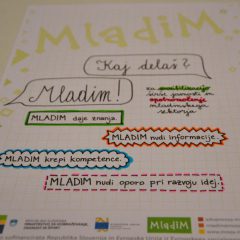 MladiM
Kaj delaš?
Mladim!
za mobilizacijo
širše javnosti in
opolnomočenje
mladinskega
sektorja
MLADIM daje znanja.
MLADIM nudi informacije.
MLADIM krepi kompetence.
MLADIM nudi oporo pri razvoju idej.
MladiM